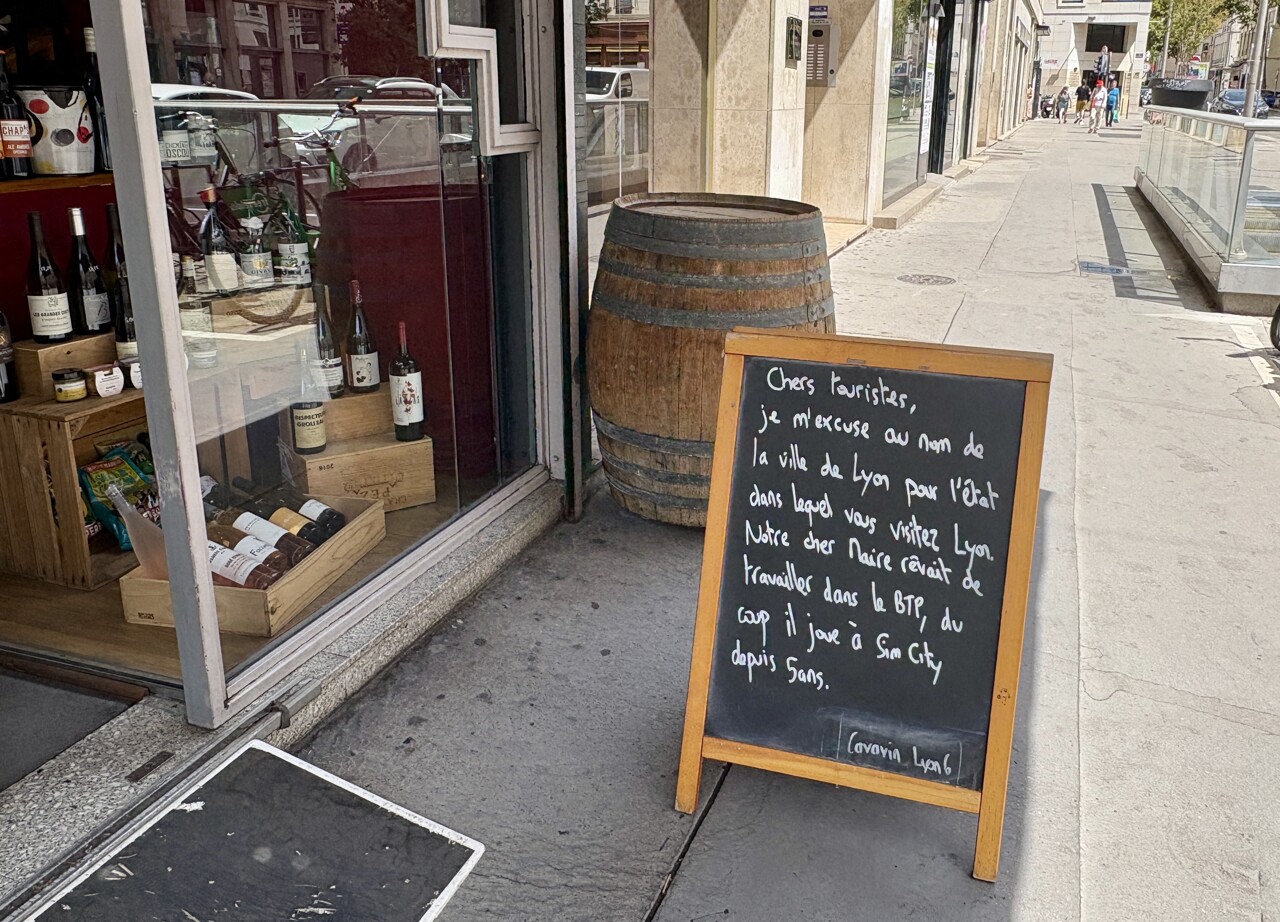 Chers touristes,
je m'excuse au nom de
la ville de Lyon pour l'état
dans lequel vous visitez Lyon.
Notre cher Maire rêvait de
travailler dans le BTP, du
coup il joue à Sim City
depuis 5ans.
Cavavin Lyon6
CHAP
LES GRANDES
INSPECTEUR
2016